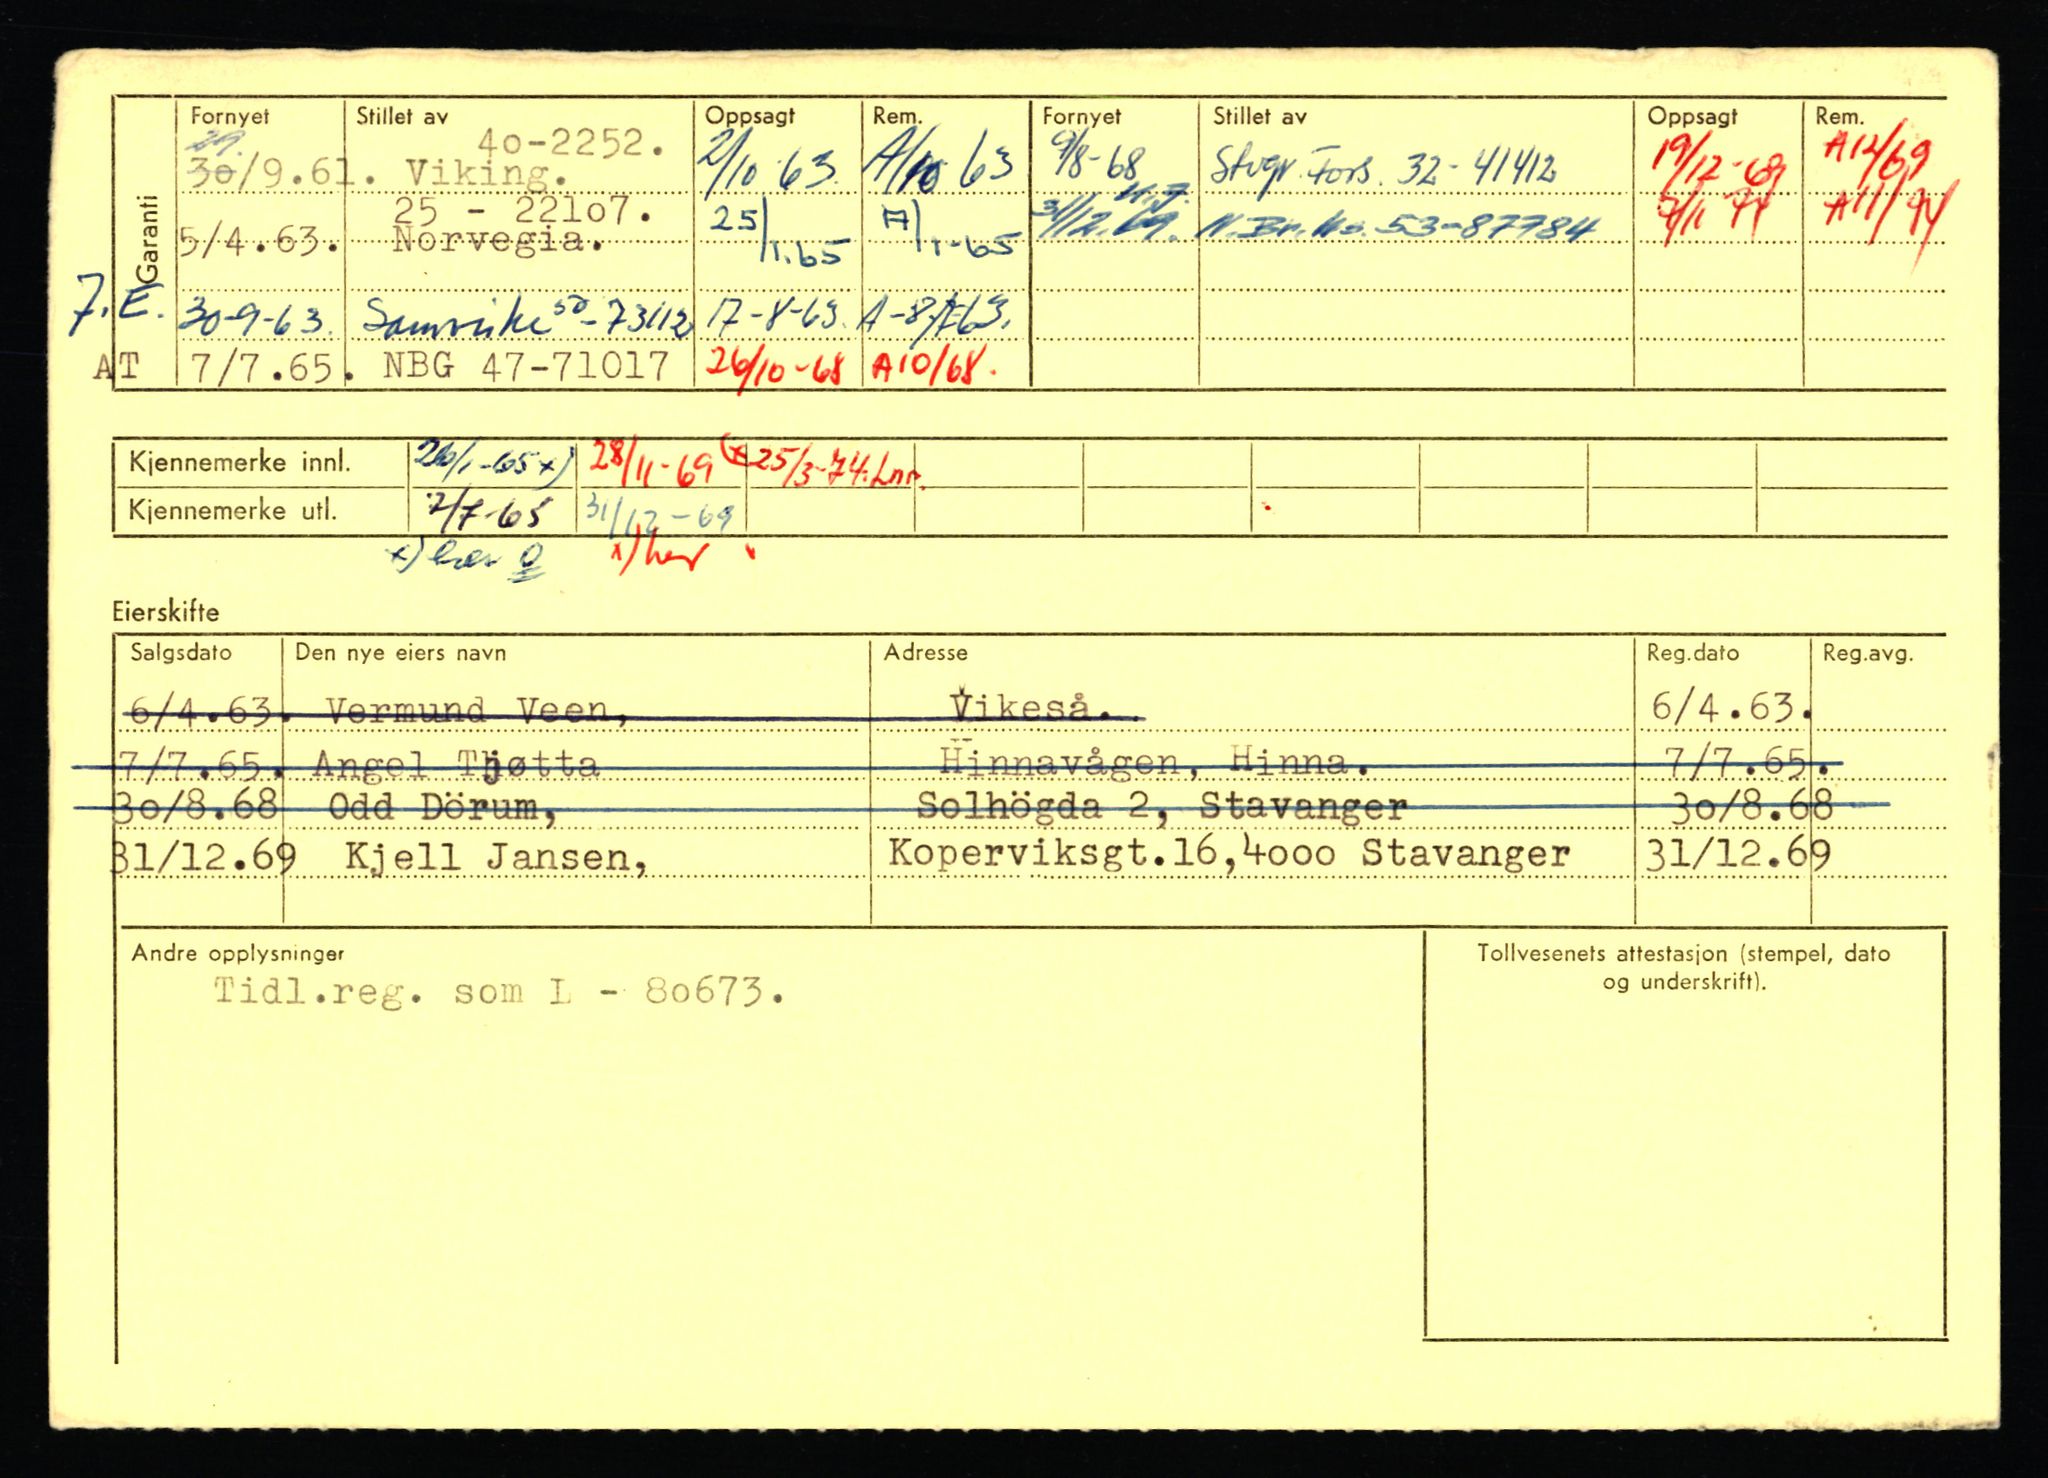 Garanti
Fornyet Stillet av Oppsagt Rem. Fornyet Stillet av Oppsagt Rem.
29. 40-2252.
30/9.61. Viking. 2/10 63. A/10 63 9/8-68 Stvgr. Fors. 32-41412 19/12-69 A12/69
25 - 22107.
5/4.63. Norvegia. 25/1.65 A/1-65 31/12.69. N.Br.Ks. 53-87784 A11/74
7.E. 30-9-63. Samvirke 50-73112 17-8-63.
AT 7/7.65. NBG 47-71017 26/10-68 A10/68.
Kjennemerke innl. 26/1-65 x) 28/11-69 (x 25/3-74. Lnr.
Kjennemerke utl. 7/7-65 31/12-69
x) her 0 x) her
Eierskifte
Salgsdato Den nye eiers navn Adresse Reg.dato Reg.avg.
6/4.63. Vermund Veen, Vikeså. 6/4.63.
7/7.65. Angel Tjøtta Hinnavågen, Hinna. 7/7.65.
30/8.68 Odd Dörum, Solhögda 2, Stavanger 30/8.68
31/12.69 Kjell Jansen, Koperviksgt.16,4000 Stavanger 31/12.69
Andre opplysninger
Tidl.reg. som L - 80673.
Tollvesenets attestasjon (stempel, dato
og underskrift).